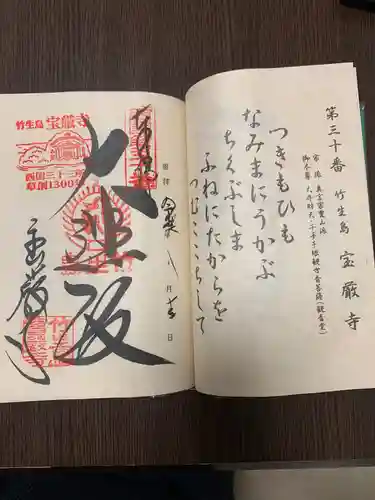 第三十番 竹生島 宝厳寺
宗派 真言宗豊山派
御本尊 大弁財天・千手千眼観世音菩薩(観音堂)
つきもひも
なみまにうかぶ
ちくぶしま
ふねにたからを
つむここちして
奉拝
月
日
竹生島 宝厳寺
西国三十三所
草創1300年
大悲殿
宝厳寺